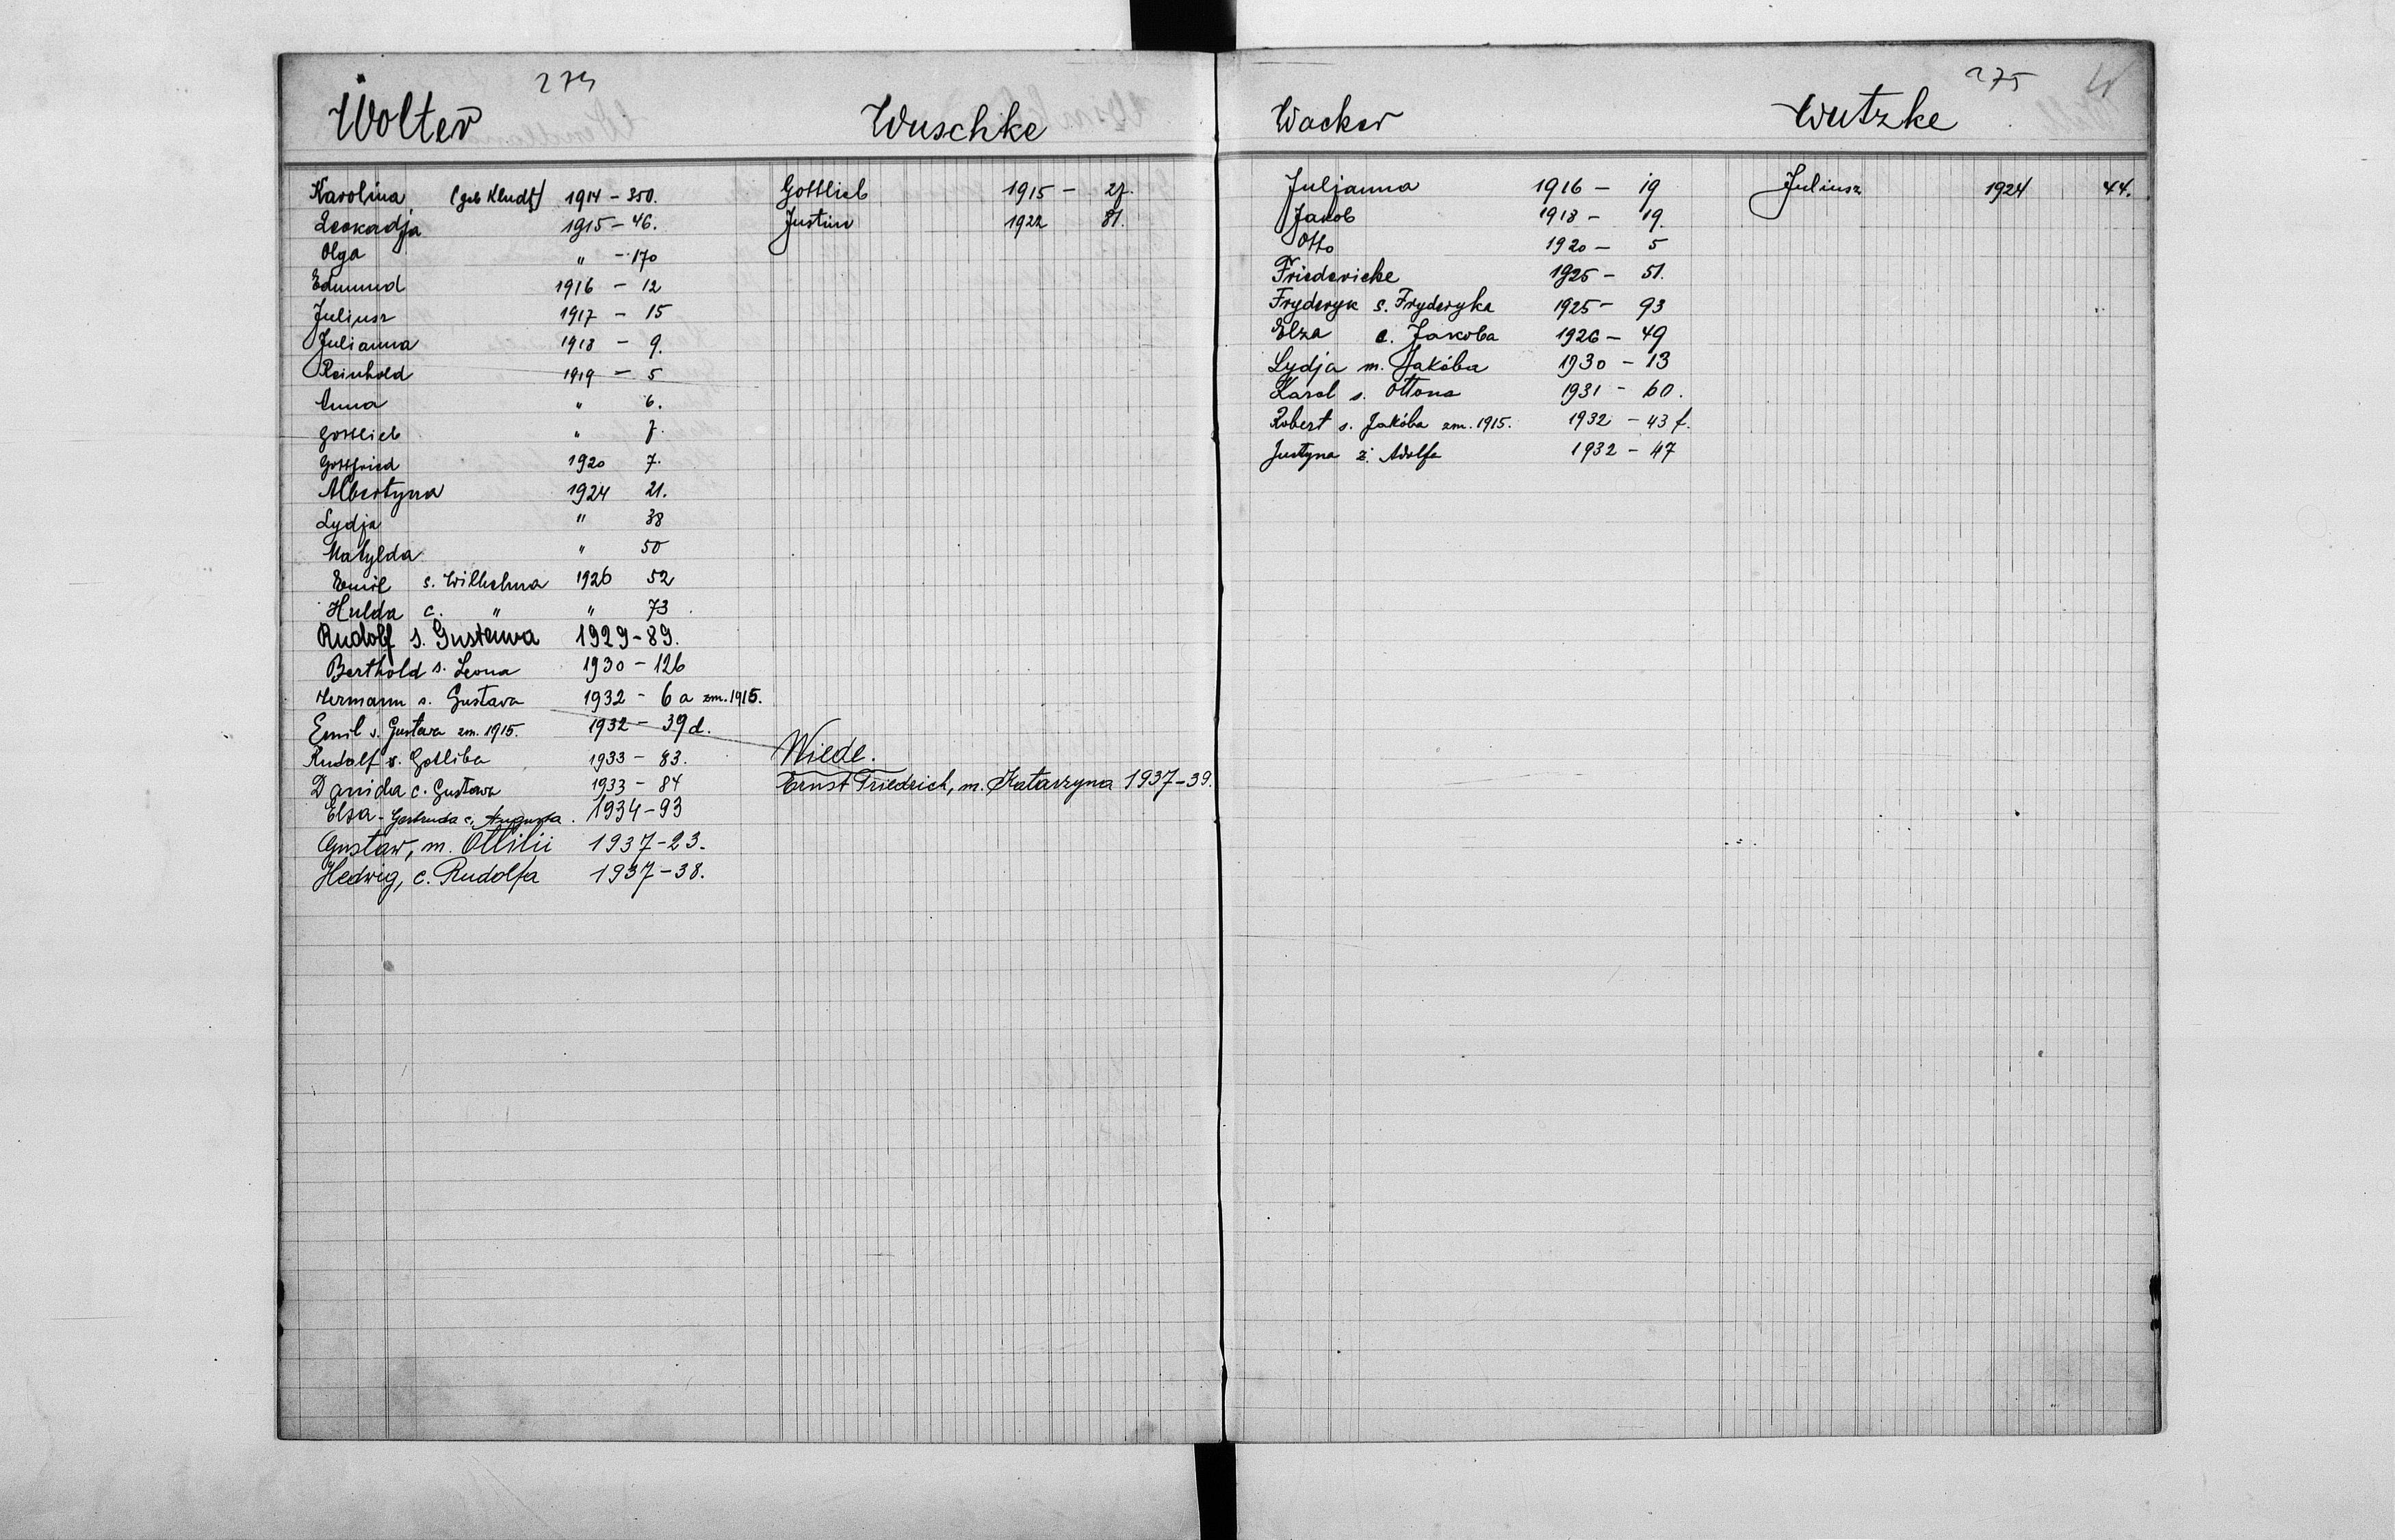 274
Wolter
Karolina (geb Kludt) 1914 - 350.
Leokadja 1915 - 46.
Olga " - 170
Edmund 1916 - 12
Juliusz 1917 - 15
Julianna 1918 - 9.
Reinhold 1919 - 5
Anna " 6.
Gottlieb " 7.
Gottfried 1920 7.
Albertyna 1924 21.
Lydja " 38
Matylda " 50
Emil s. Wilhelma 1926 52
Hulda c. " " 73
Rudolf s. Gustawa 1929 - 89.
Berthold s. Leona 1930 - 126
Hermann s. Gustava 1932 - 6 a zm. 1915.
Emil s. Gustawa zm. 1915. 1932 - 39 d.
Rudolf s. Gotliba 1933 - 83.
Danida c. Gustawa 1933 - 84
Elsa - Gertruda c. Augusta. 1934 - 93
Gustaw, m. Ottilii 1937 - 23.
Hedwig, c. Rudolfa 1937 - 38.
Wuschke
Gottlieb 1915 - 27.
Justine 1922 81.
Wiede.
Ernst Friedrich, m. Katarzyna 1937 - 39.
275
W
Wacker
Juljanna 1916 - 19
Jakob 1918 - 19.
Otto 1920 - 5
Friedericke 1925 - 51.
Fryderyk s. Fryderyka 1925 - 93
Elza c. Jakoba 1926 - 49
Lydja m. Jakóba 1930 - 13
Karol s. Ottona 1931 - 60.
Robert s. Jakóba zm. 1915. 1932 - 43 f.
Justyna ż. Adolfa 1932 - 47
Wutzke
Juliusz 1924 44.